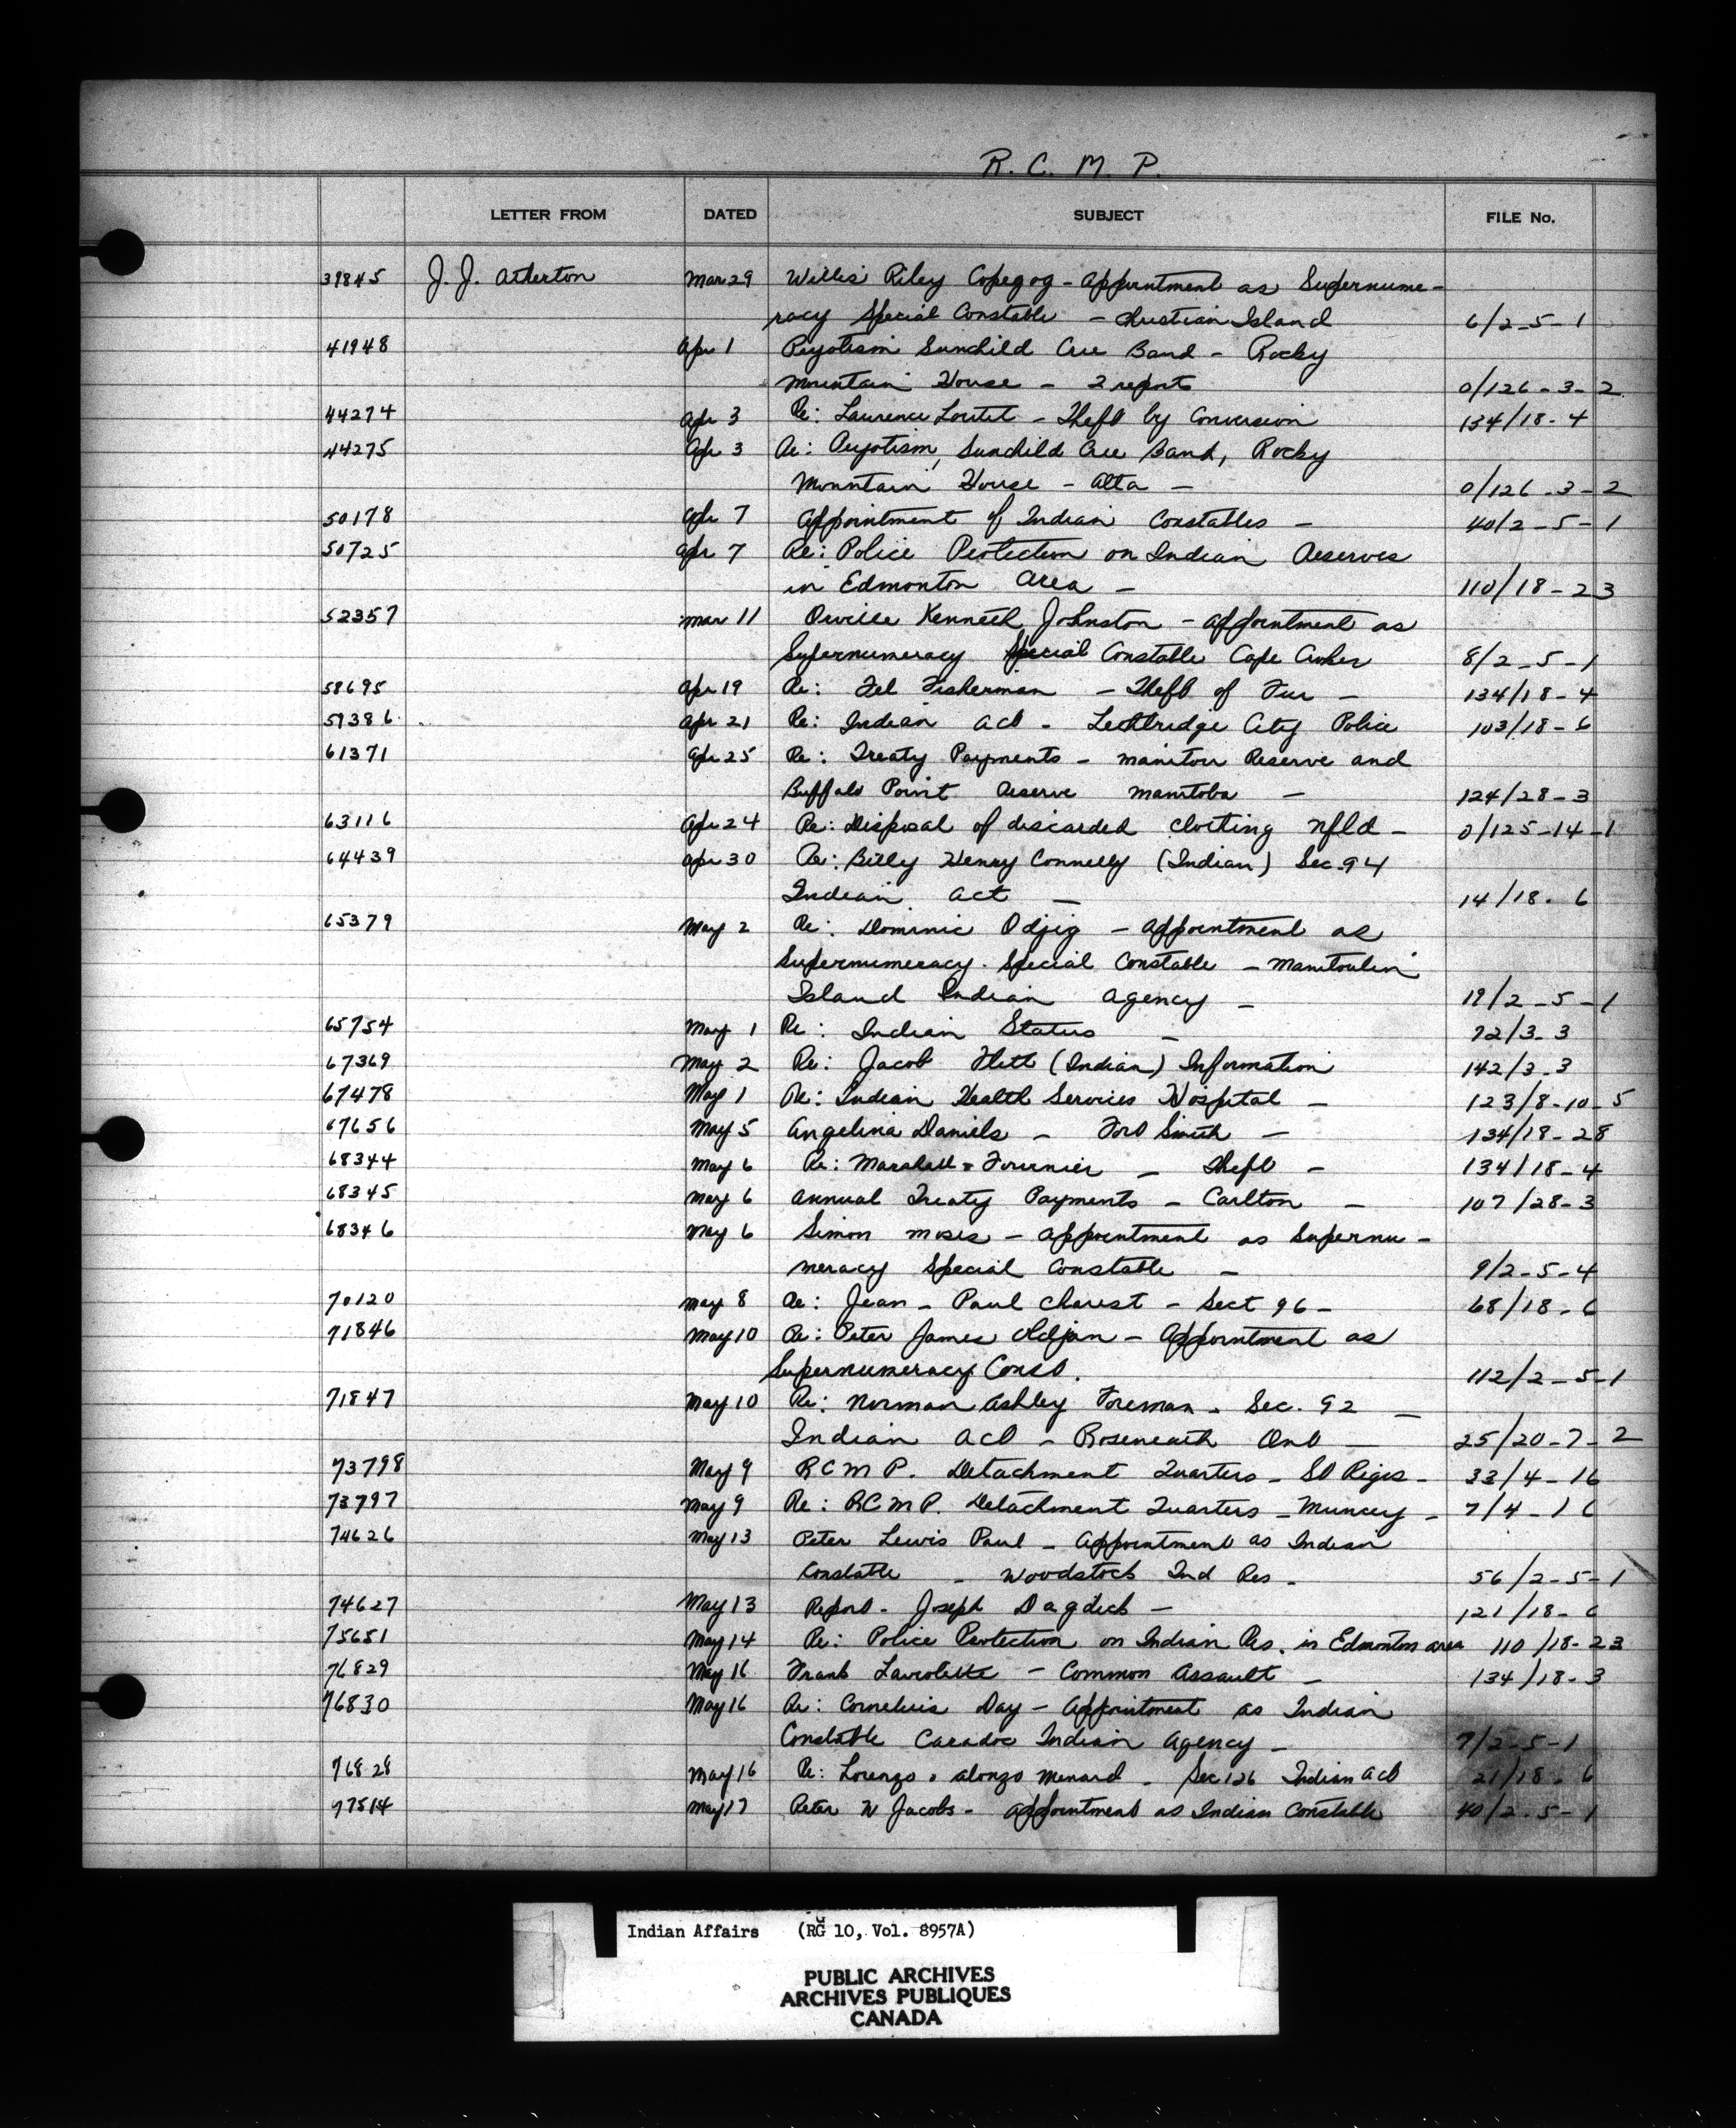 R. C. M. P.
LETTER FROM DATED SUBJECT FILE No.
39845 J. J. Atherton Mar 29 Willis Riley Copegog - Appointment as Supernume-
racy Special Constable - Christian Island 6/2-5-1
41948 Apr 1 Peyotism Sunchild Cree Band - Rocky
Mountain House - 2 reports 0/126-3-2
44274 Apr 3 Re: Laurence Loutet - Theft by Conversion 134/18-4
44275 Apr 3 Re: Peyotism, Sunchild Cree Band, Rocky
Mountain House - Alta - 0/126-3-2
50178 Apr 7 Appointment of Indian Constables - 40/2-5-1
50725 Apr 7 Re: Police Protection on Indian Reserves
in Edmonton Area - 110/18-23
52357 Mar 11 Orville Kenneth Johnston - appointment as
Supernumeracy Special Constable Cape Croker 8/2-5-1
58695 Apr 19 Re: Fisherman - Theft of Fur - 134/18-4
59386 Apr 21 Re: Indian Act - Lethbridge City Police 103/18-6
61371 Apr 25 Re: Treaty Payments - Manitou Reserve and
Buffalo Point Reserve Manitoba - 124/28-3
63116 Apr 24 Re: Disposal of discarded clothing Nfld - 0/125-14-1
64439 Apr 30 Re: Billy Henry Connelly (Indian) Sec. 94
Indian Act - 14/18-6
65379 May 2 Re: Dominic Odjig - appointment as
Supernumeracy Special Constable - Manitoulin
Island Indian Agency - 19/2-5-1
65754 May 1 Re: Indian Status - 72/3-3
67369 May 2 Re: Jacob Flett (Indian) Information 142/3-3
67478 May 1 Re: Indian Health Services Hospital - 123/8-10-5
67656 May 5 Angelina Daniels - Fort Smith - 134/18-28
68344 May 6 Re: Marshall Fournier - Theft - 134/18-4
68345 May 6 Annual Treaty Payments - Carlton - 107/28-3
68346 May 6 Simon Moses - appointment as Supernu-
meracy Special Constable - 9/2-5-4
70120 May 8 Re: Jean-Paul Charest - Sect 96 - 68/18-6
71846 May 10 Re: Peter James Oldjan - Appointment as
Supernumeracy Const. 112/2-5-1
71847 May 10 Re: Norman Ashley Foreman - Sec. 92 -
Indian Act - Roseneath Ont - 25/20-7-2
73798 May 9 RCMP. Detachment Quarters - St Regis - 33/4-16
73797 May 9 Re: RCMP. Detachment Quarters - Muncey - 7/4-16
74626 May 13 Peter Lewis Paul - Appointment as Indian
Constable - Woodstock Ind Res - 56/2-5-1
74627 May 13 Report - Joseph Dagdick - 121/18-6
75651 May 14 Re: Police Protection on Indian Res. in Edmonton area 110/18-23
76829 May 16 Frank Laviolette - Common Assault - 134/18-3
76830 May 16 Re: Cornelius Day - Appointment as Indian
Constable Caradoc Indian Agency - 7/2-5-1
76828 May 16 Re: Lorenzo & Alonzo Menard - Sec 126 Indian Act 21/18-6
77514 May 17 Peter W Jacobs - appointment as Indian Constable 40/2-5-1
Indian Affairs (RG 10, Vol. 8957A)
PUBLIC ARCHIVES
ARCHIVES PUBLIQUES
CANADA